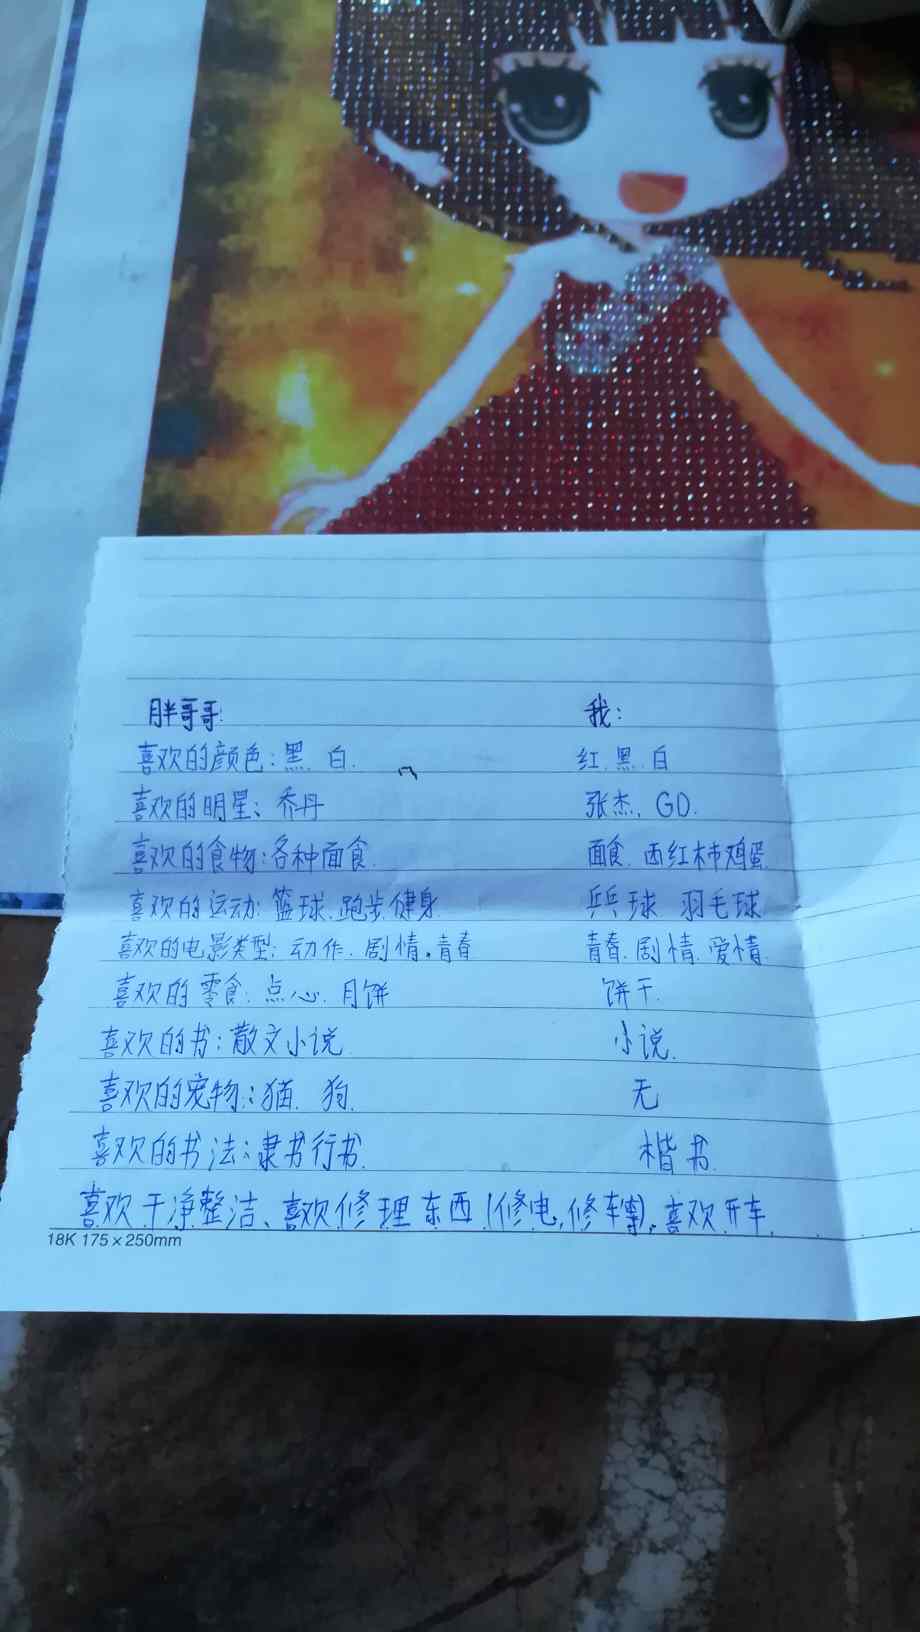 胖哥哥: 我:
喜欢的颜色:黑、白. 红、黑、白
喜欢的明星:乔丹 张杰、GD.
喜欢的食物:各种面食. 面食、西红柿鸡蛋
喜欢的运动:篮球、跑步、健身 乒乓球 羽毛球
喜欢的电影类型:动作、剧情、青春 青春、剧情、爱情.
喜欢的零食:点心、月饼 饼干.
喜欢的书:散文小说 小说.
喜欢的宠物:猫 狗 无
喜欢的书法:隶书行书. 楷书.
喜欢干净整洁、喜欢修理东西(修电,修车等),喜欢开车.
18K 175×250mm